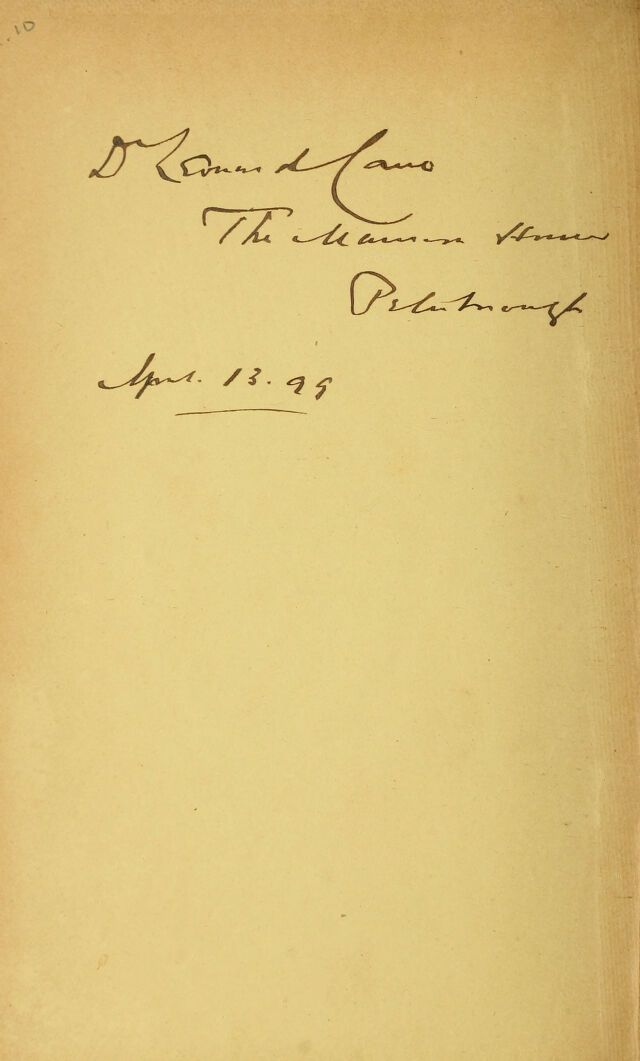 .10
Dr Leonard Cane
The Mansion House
Peterborough
April. 13. 99